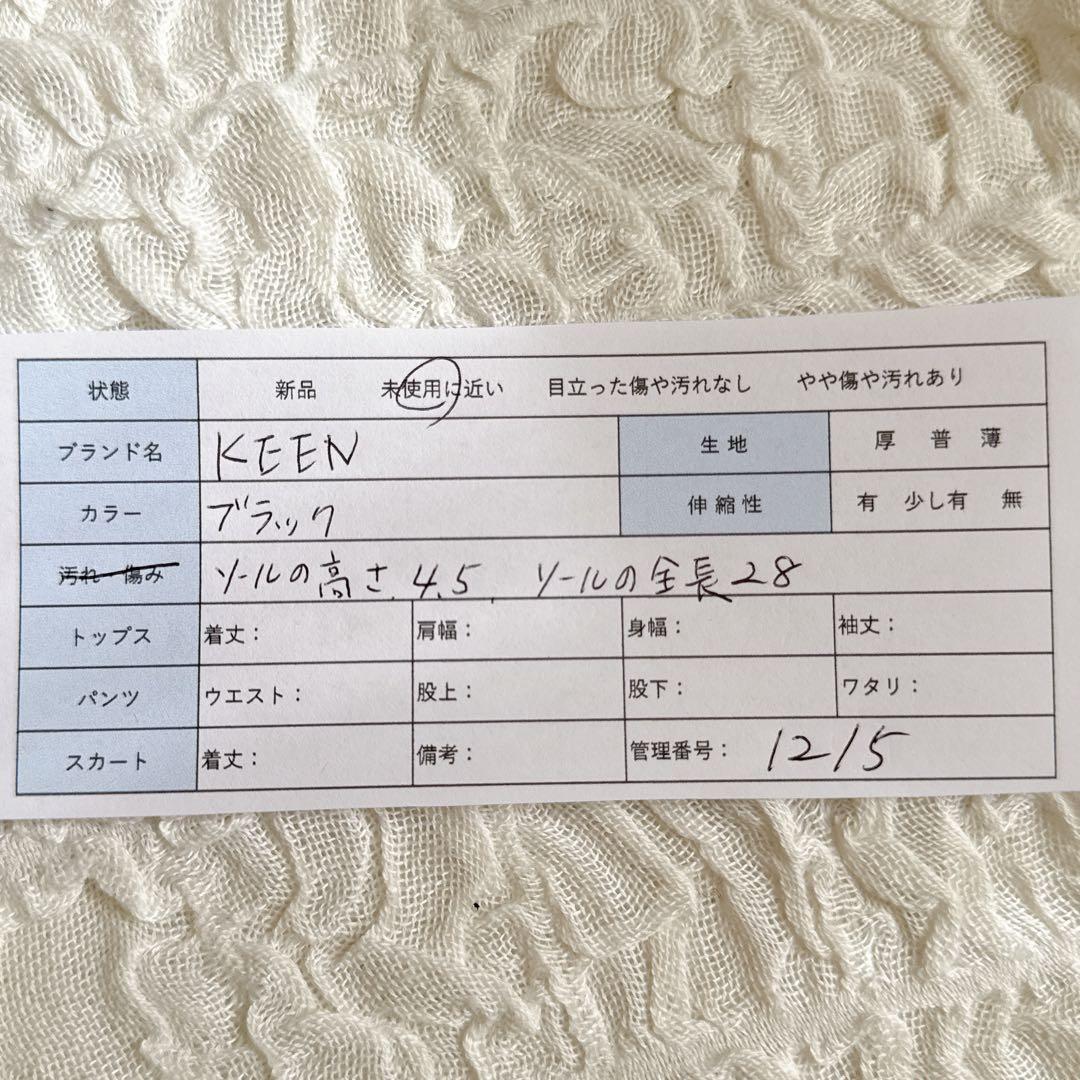 状態 新品 未使用に近い 目立った傷や汚れなし やや傷や汚れあり
ブランド名 KEEN 生地 厚 普 薄
カラー ブラック 伸縮性 有 少し有 無
汚れ・傷み ソールの高さ 4.5, ソールの全長28
トップス 着丈： 肩幅： 身幅： 袖丈：
パンツ ウエスト： 股上： 股下： ワタリ：
スカート 着丈： 備考： 管理番号： 1215